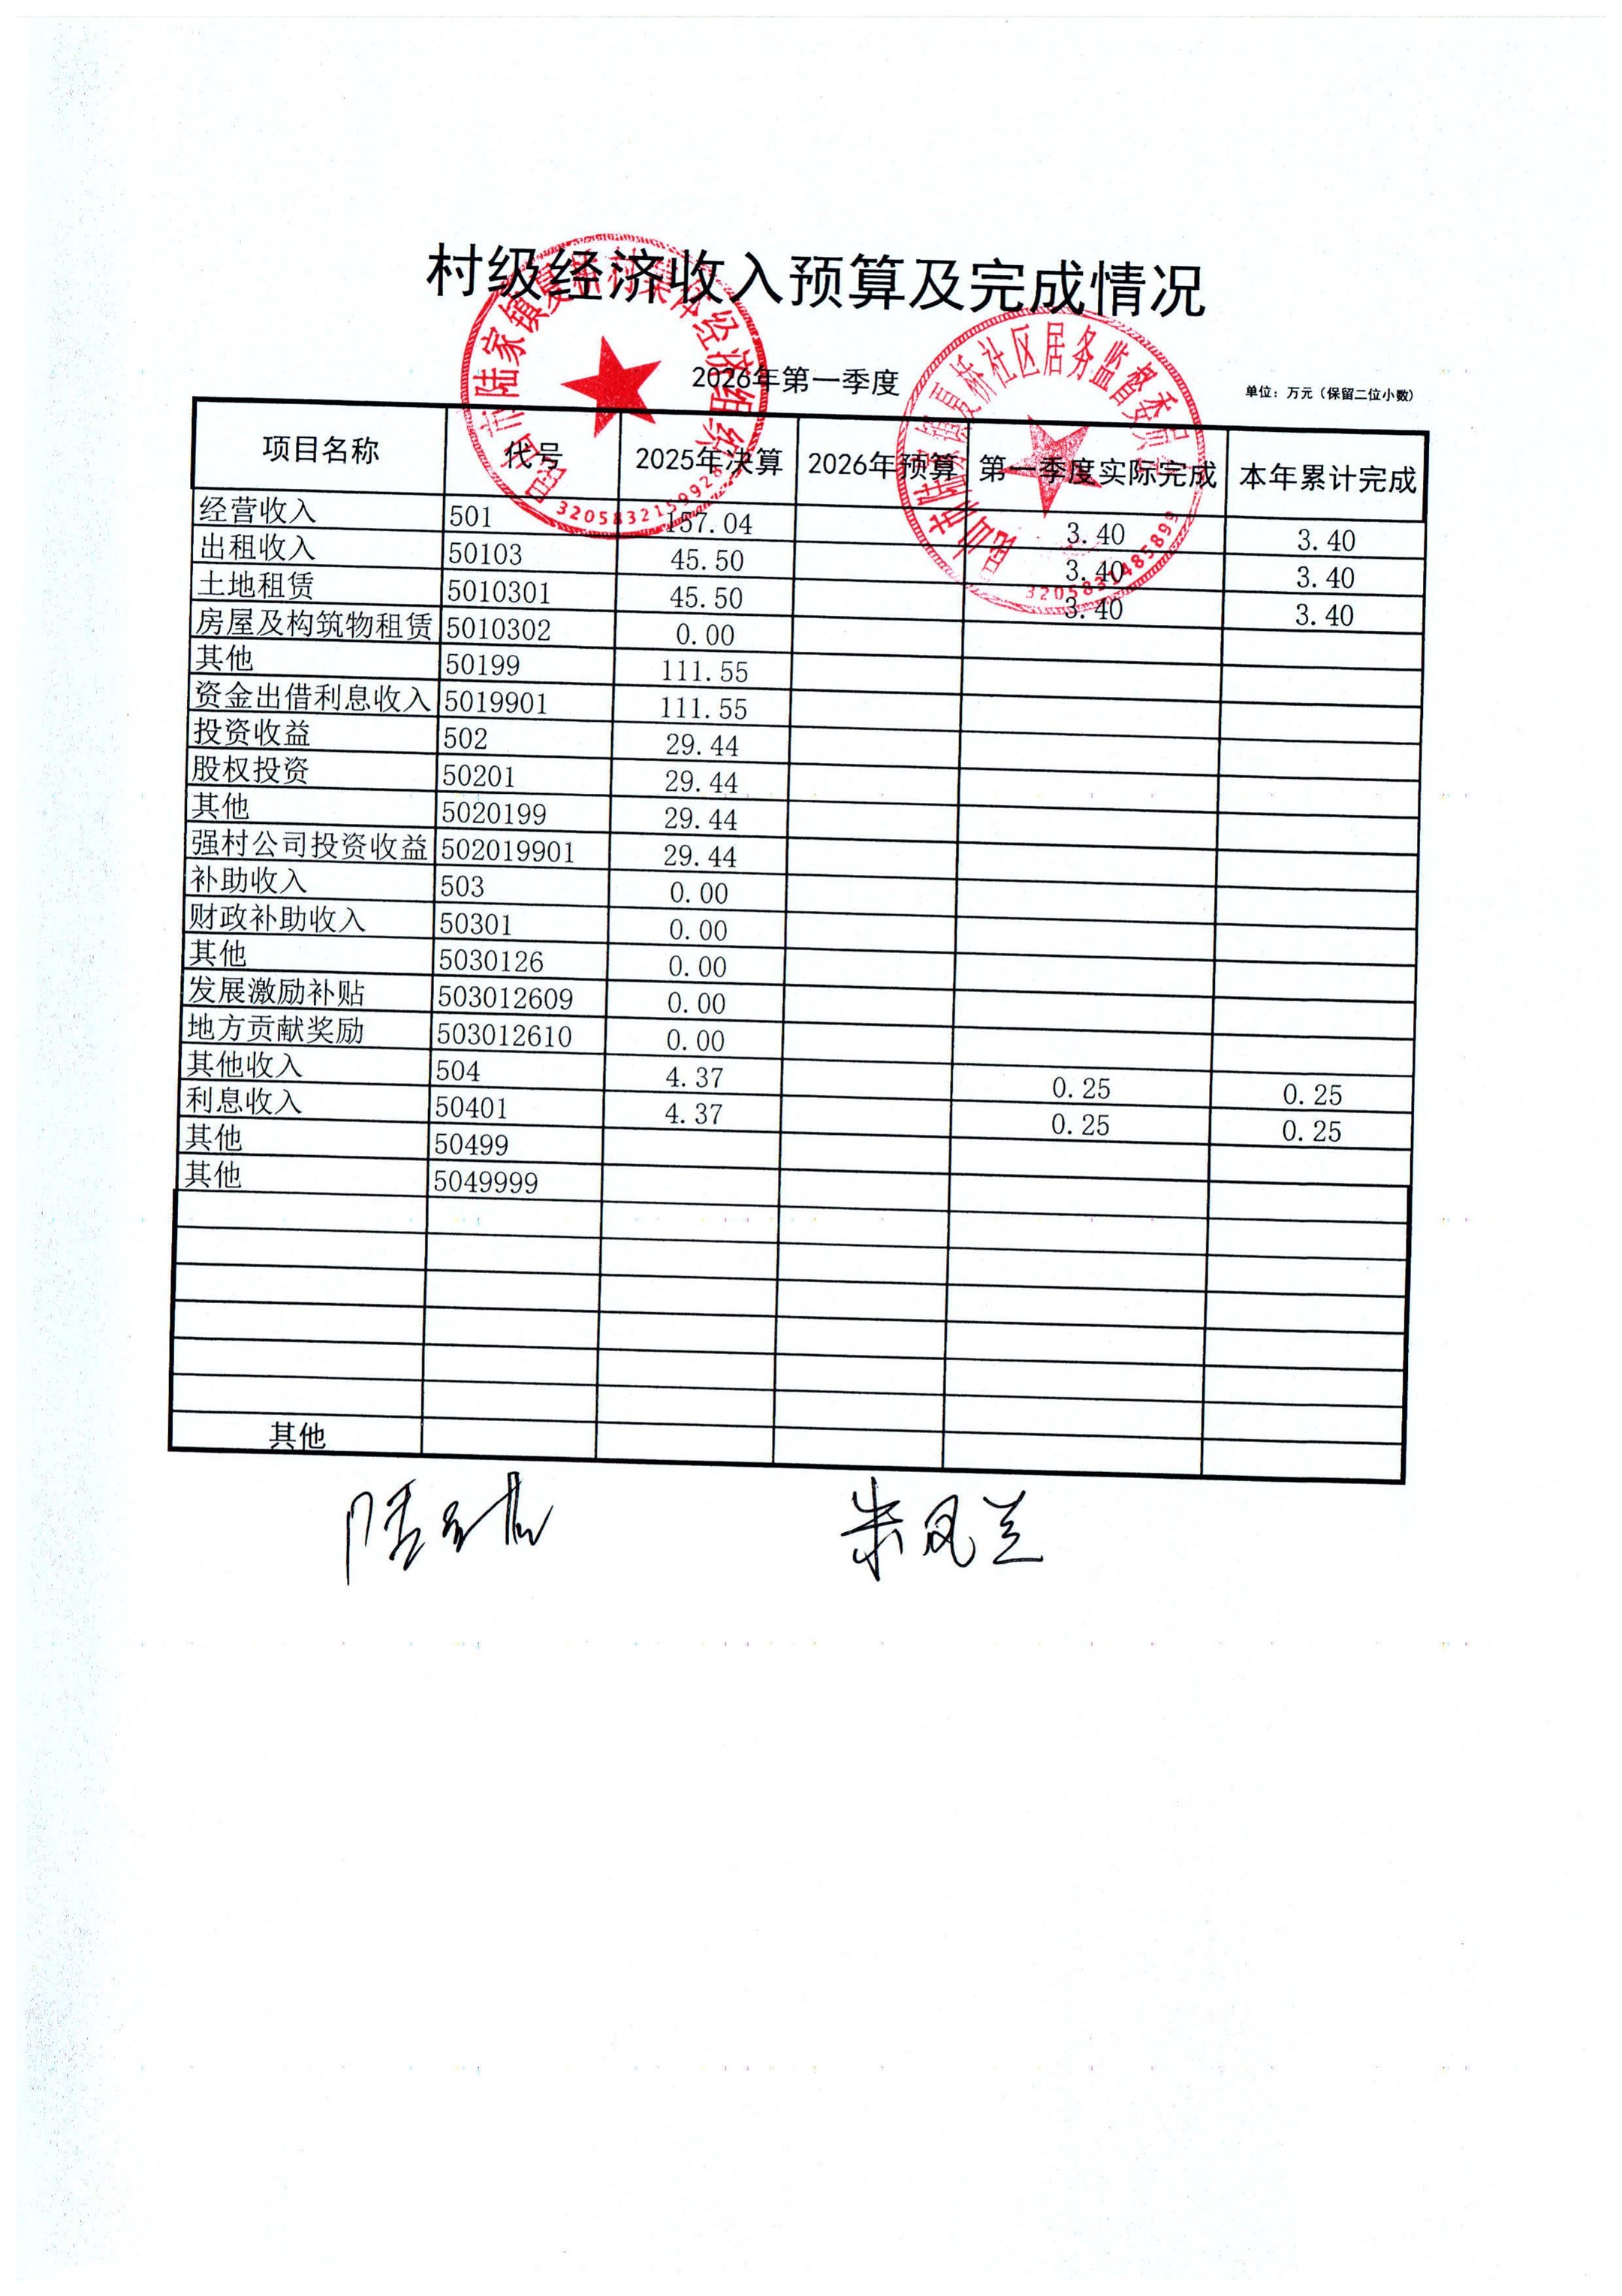 村级经济收入预算及完成情况
2026年第一季度
单位：万元（保留二位小数）
项目名称 代号 2025年决算 2026年预算 第一季度实际完成 本年累计完成
经营收入 501 157.04 3.40 3.40
出租收入 50103 45.50 3.40 3.40
土地租赁 5010301 45.50 3.40 3.40
房屋及构筑物租赁 5010302 0.00
其他 50199 111.55
资金出借利息收入 5019901 111.55
投资收益 502 29.44
股权投资 50201 29.44
其他 5020199 29.44
强村公司投资收益 502019901 29.44
补助收入 503 0.00
财政补助收入 50301 0.00
其他 5030126 0.00
发展激励补贴 503012609 0.00
地方贡献奖励 503012610 0.00
其他收入 504 4.37 0.25 0.25
利息收入 50401 4.37 0.25 0.25
其他 50499
其他 5049999
其他
昆山市陆家镇夏桥村集体经济组织
昆山市陆家镇夏桥社区居务监督委员会
3205831485899
朱凤兰